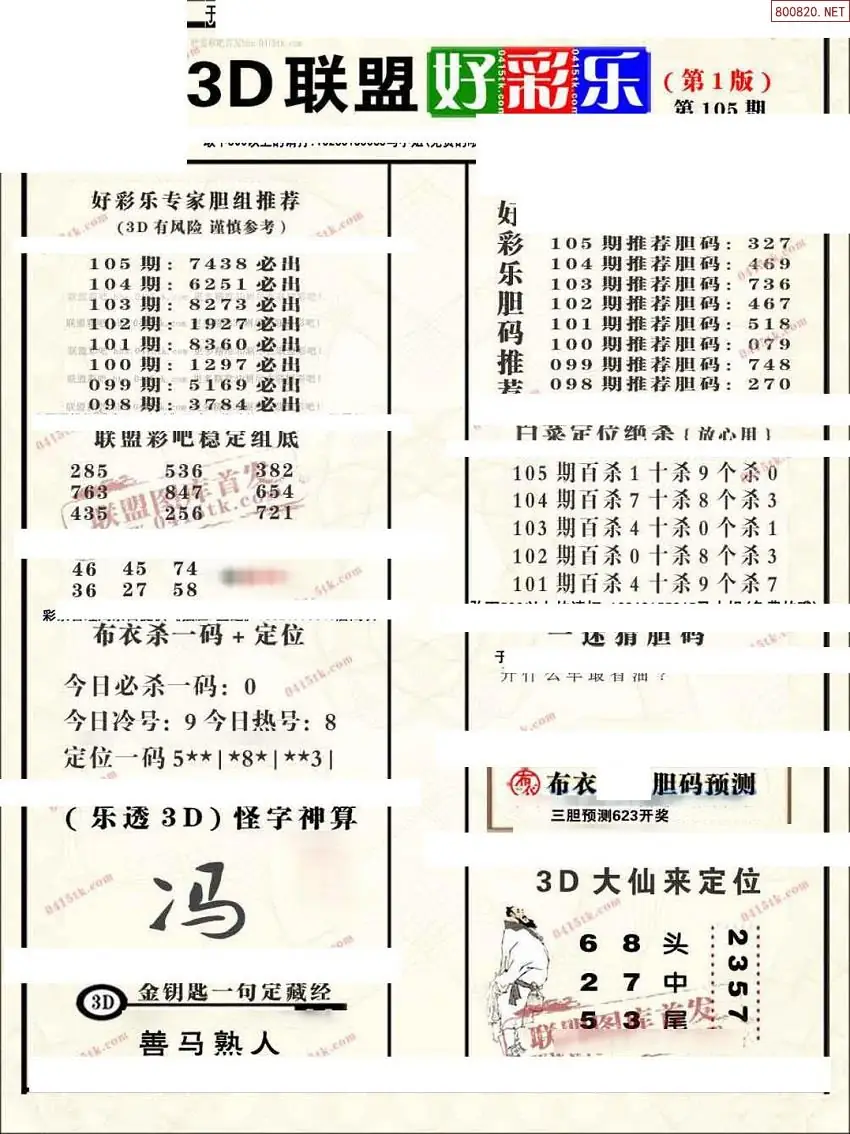 800820.NET
3D联盟好彩乐
(第1版)
第105期
好彩乐专家胆组推荐
(3D有风险 谨慎参考)
105期:7438必出
104期:6251必出
103期:8273必出
102期:1927必出
101期:8360必出
100期:1297必出
099期:5169必出
098期:3784必出
联盟彩吧稳定组底
285 536 382
763 847 654
435 256 721
联盟图库首发
0415tk.com
46 45 74
36 27 58
布衣杀一码+定位
今日必杀一码:0
今日冷号:9 今日热号:8
定位一码5**|*8*|**3|
(乐透3D)怪字神算
冯
3D 金钥匙一句定藏经
善马熟人
好彩乐胆码推荐
105期推荐胆码:327
104期推荐胆码:469
103期推荐胆码:736
102期推荐胆码:467
101期推荐胆码:518
100期推荐胆码:079
099期推荐胆码:748
098期推荐胆码:270
白菜定位绝杀{放心用}
105期百杀1十杀9个杀0
104期百杀7十杀8个杀3
103期百杀4十杀0个杀1
102期百杀0十杀8个杀3
101期百杀4十杀9个杀7
一迷猜胆码
布衣 胆码预测
三胆预测623开奖
3D大仙来定位
6 8 头
2 7 中
5 3 尾
2357
联盟图库首发